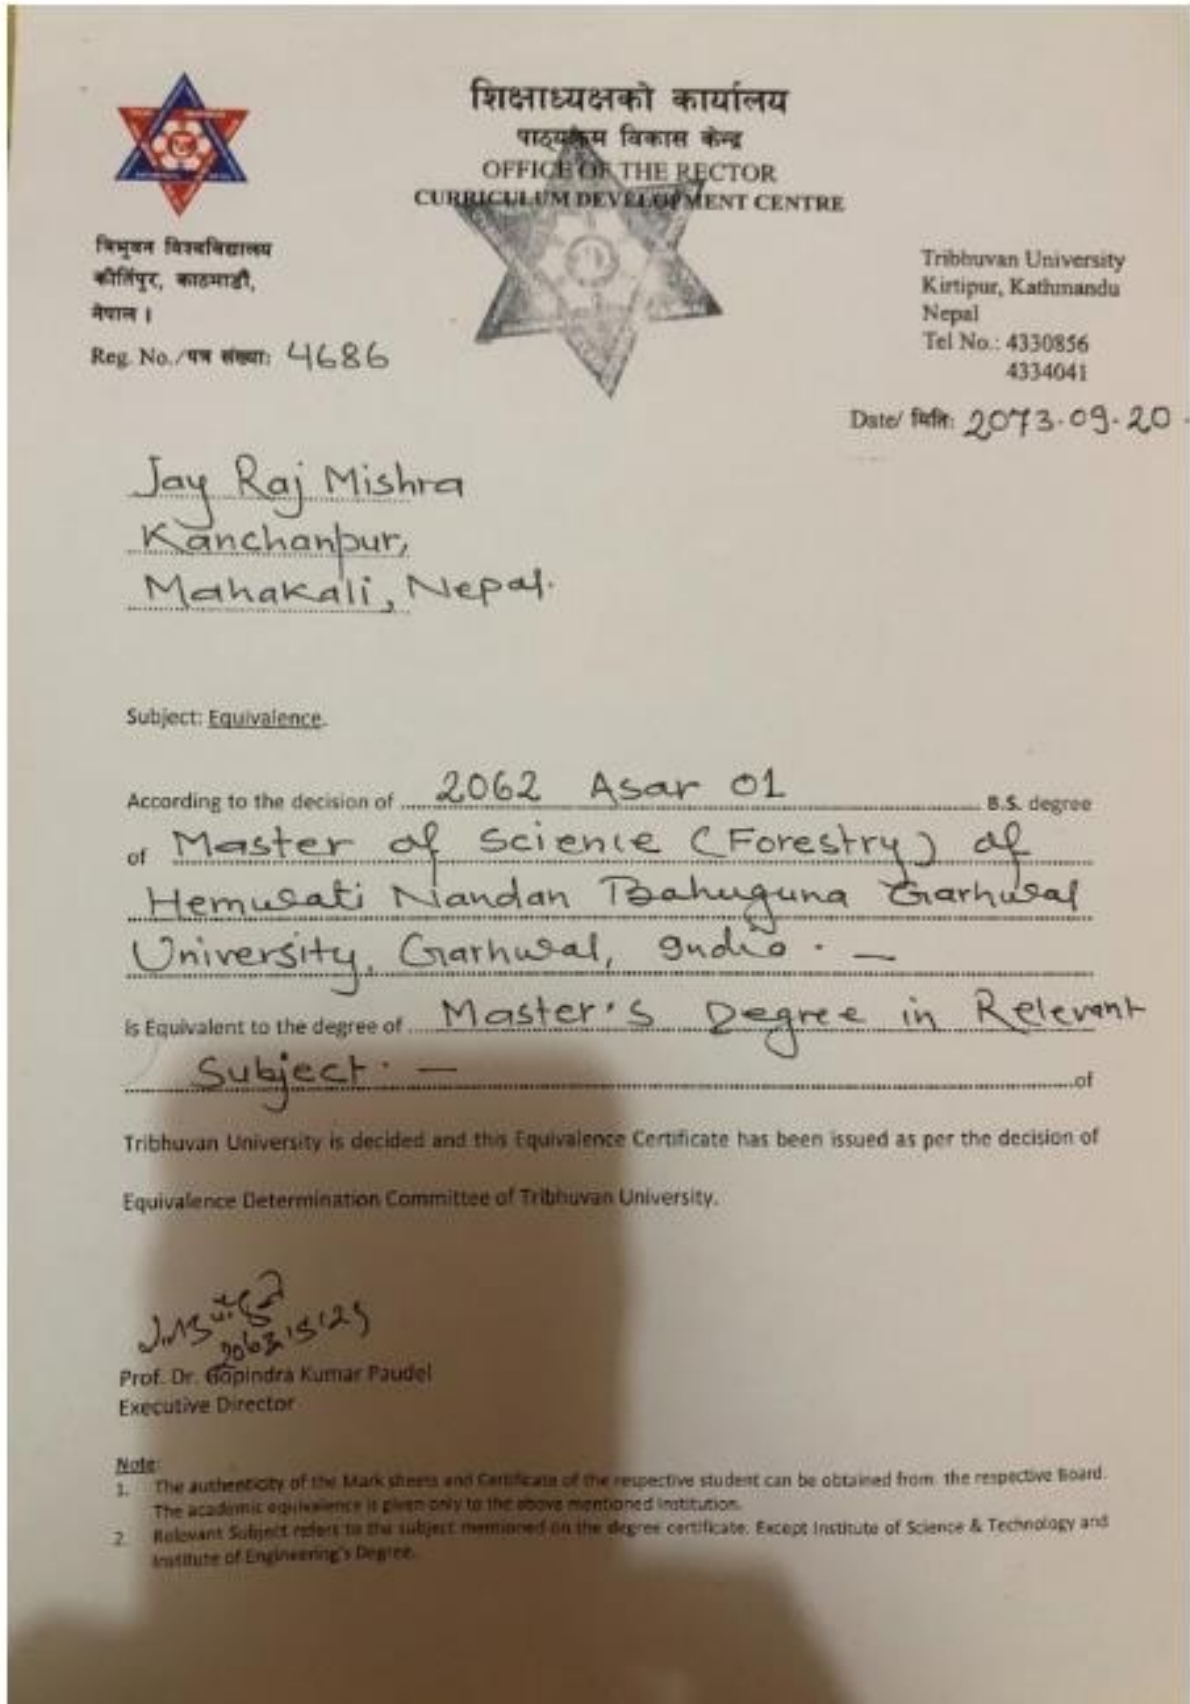 शिक्षाध्यक्षको कार्यालय
पाठ्यक्रम विकास केन्द्र
OFFICE OF THE RECTOR
CURRICULUM DEVELOPMENT CENTRE
त्रिभुवन विश्वविद्यालय
कीर्तिपुर, काठमाडौं,
नेपाल ।
Reg. No./पत्र संख्या: 4686
Tribhuvan University
Kirtipur, Kathmandu
Nepal
Tel No.: 4330856
4334041
Date/ मिति: 2073.09.20
Jay Raj Mishra
Kanchanpur,
Mahakali, Nepal.
Subject: Equivalence.
According to the decision of 2062 Asar 01 B.S. degree
of Master of Science (Forestry) of
Hemwati Nandan Bahuguna Garhwal
University, Garhwal, India. —
is Equivalent to the degree of Master's Degree in Relevant
Subject. — of
Tribhuvan University is decided and this Equivalence Certificate has been issued as per the decision of
Equivalence Determination Committee of Tribhuvan University.
Prof. Dr. Gopindra Kumar Paudel
Executive Director
Note:
1. The authenticity of the Mark sheets and Certificate of the respective student can be obtained from the respective Board.
The academic equivalence is given only to the above mentioned institution.
2. Relevant Subject refers to the subject mentioned on the degree certificate. Except Institute of Science & Technology and
Institute of Engineering's Degree.